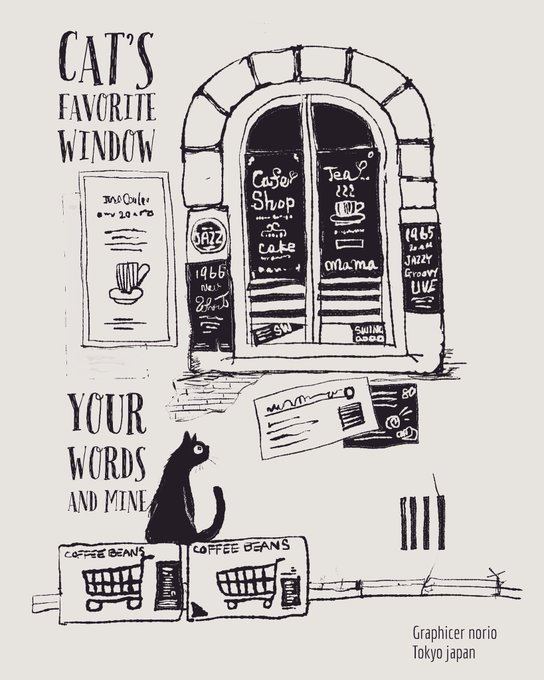 CAT'S
FAVORITE
WINDOW
Cafe
Shop
cake
Tea
mama
JAZZ
1966
New
1965
JAZZY
Groovy
LIVE
SW
SWING
80
YOUR
WORDS
AND MINE
COFFEE BEANS
COFFEE BEANS
Graphicer norio
Tokyo japan